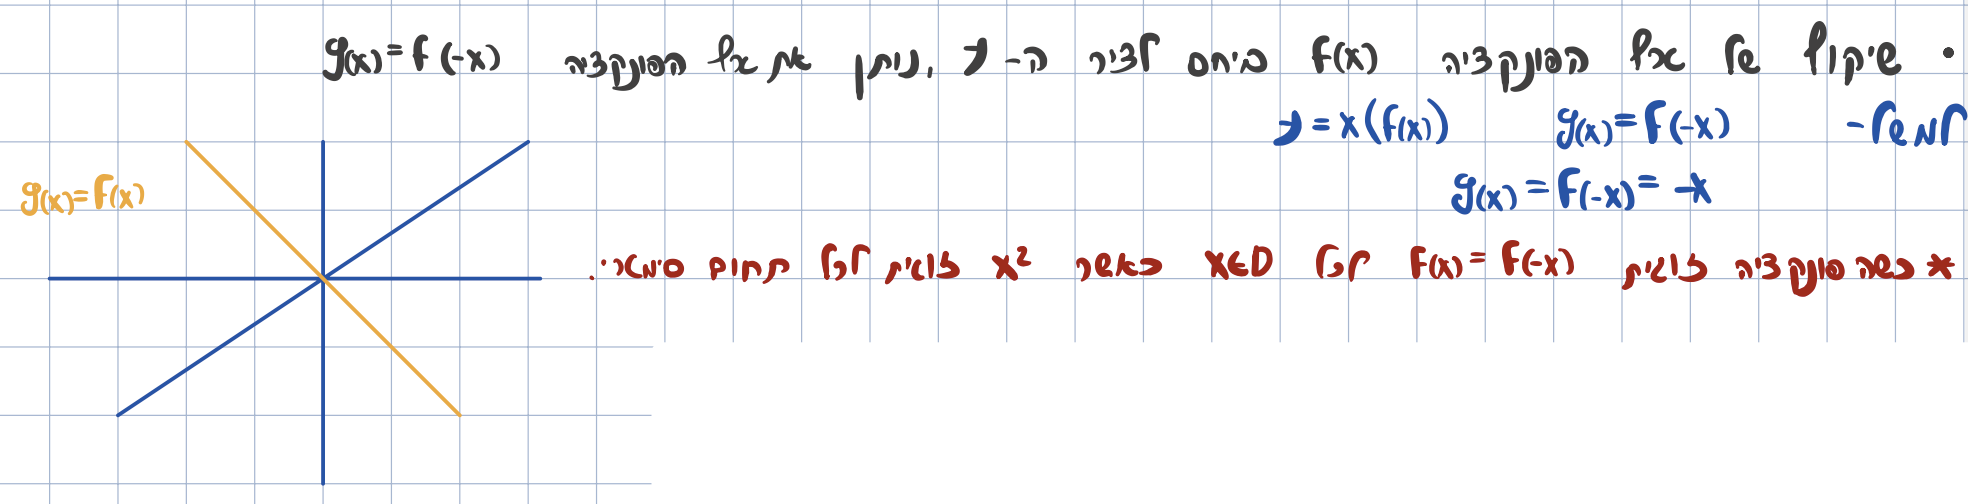 • שיקוף של גרף הפונקציה f(x) ביחס לציר ה-y, ניתן את גרף הפונקציה g(x)=f(-x)
למשל- g(x)=f(-x) y=x(f(x))
g(x)=f(-x)=-x
g(x)=f(x)
* כשה פונקציה זוגית f(x)=f(-x) לכל x∈D כאשר x² זוגית לכל תחום סימטרי.